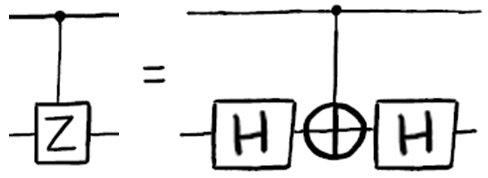 =
Z H H